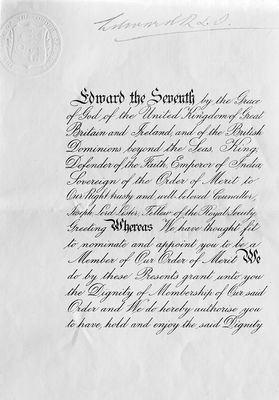 Edward R & I.
Edward the Seventh by the Grace
of God, of the United Kingdom of Great
Britain and Ireland, and of the British
Dominions beyond the Seas, King,
Defender of the Faith, Emperor of India,
Sovereign of the Order of Merit to
Our Right trusty and well beloved Councillor,
Joseph Lord Lister, Fellow of the Royal Society,
Greeting Whereas We have thought fit
to nominate and appoint you to be a
Member of Our Order of Merit We
do by these Presents grant unto you
the Dignity of Membership of Our said
Order and We do hereby authorise you
to have, hold and enjoy the said Dignity